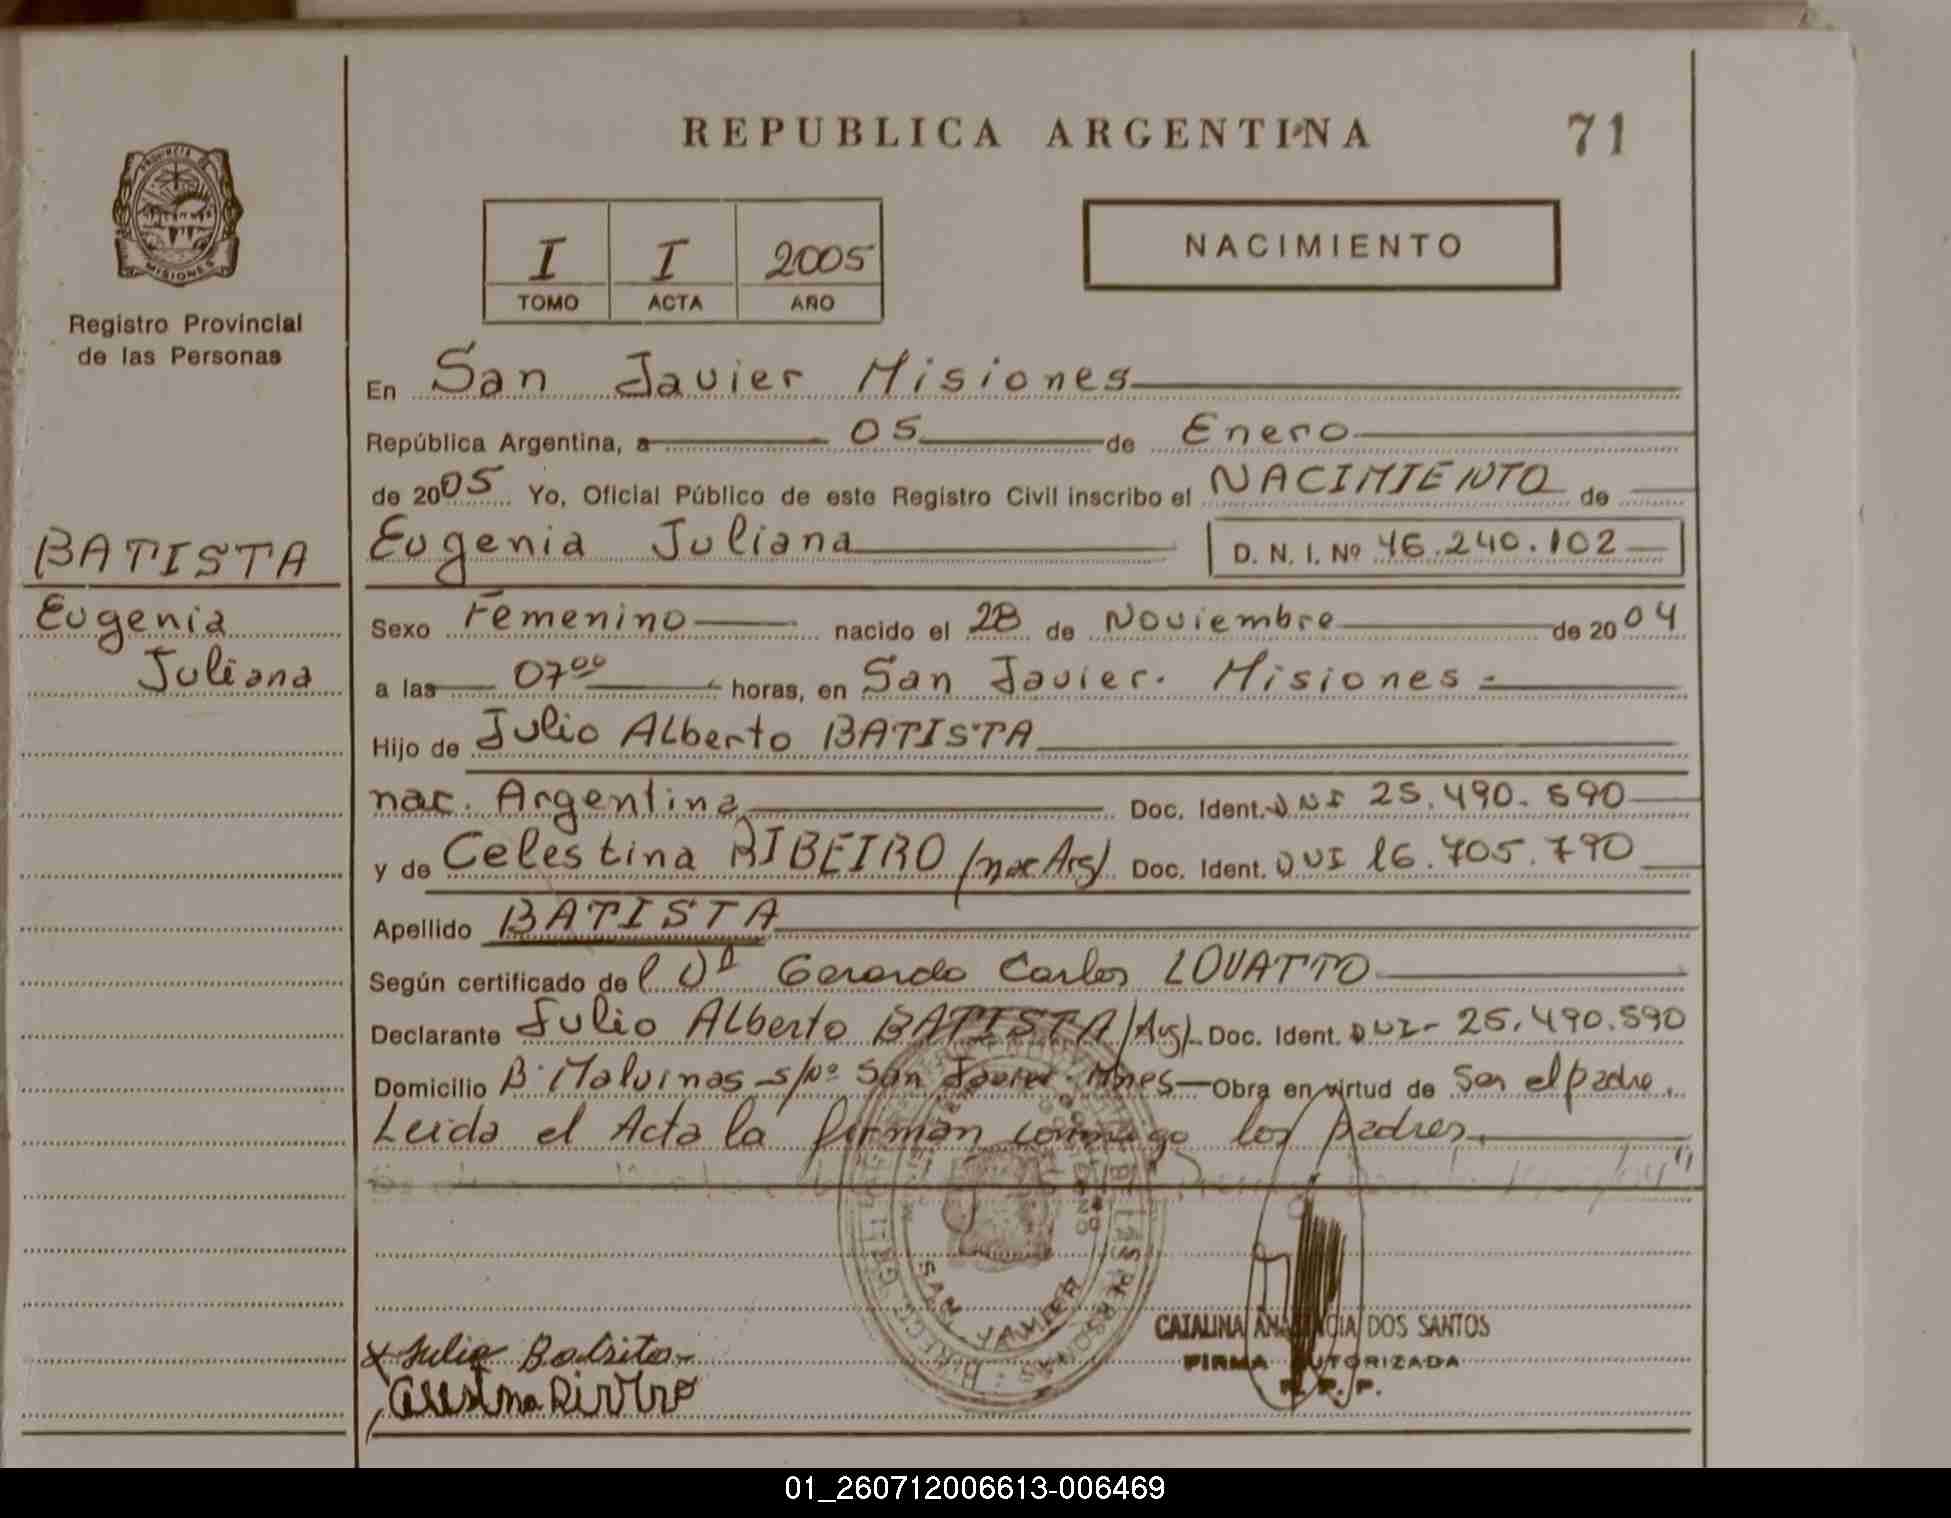 REPUBLICA ARGENTINA
71
PROVINCIA DE
MISIONES
Registro Provincial
de las Personas
I I 2005
TOMO ACTA AÑO
NACIMIENTO
En San Javier Misiones
República Argentina, a 05 de Enero
de 2005 Yo, Oficial Público de este Registro Civil inscribo el NACIMIENTO de
BATISTA
Eugenia Juliana
D. N. I. Nº 46.240.102
Eugenia
Juliana
Sexo Femenino nacido el 28 de Noviembre de 2004
a las 07⁰⁰ horas, en San Javier. Misiones
Hijo de Julio Alberto BATISTA
nac. Argentina Doc. Ident. DNI 25.490.590
y de Celestina RIBEIRO (nac Arg) Doc. Ident. DNI 16.705.790
Apellido BATISTA
Según certificado del Dr Gerardo Carlos LOVATTO
Declarante Julio Alberto BATISTA (Arg) Doc. Ident. DNI- 25.490.590
Domicilio Bº Malvinas s/Nº San Javier Mnes Obra en virtud de Ser el padre.
Leida el Acta la firman conmigo los padres.
SAN JAVIER
CATALINA DOS SANTOS
FIRMA AUTORIZADA
R. P. P.
Julio Batista
01_260712006613-006469